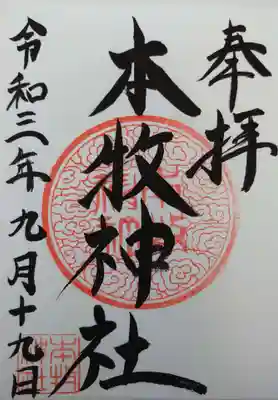 奉拝
本牧神社
令和三年九月十九日